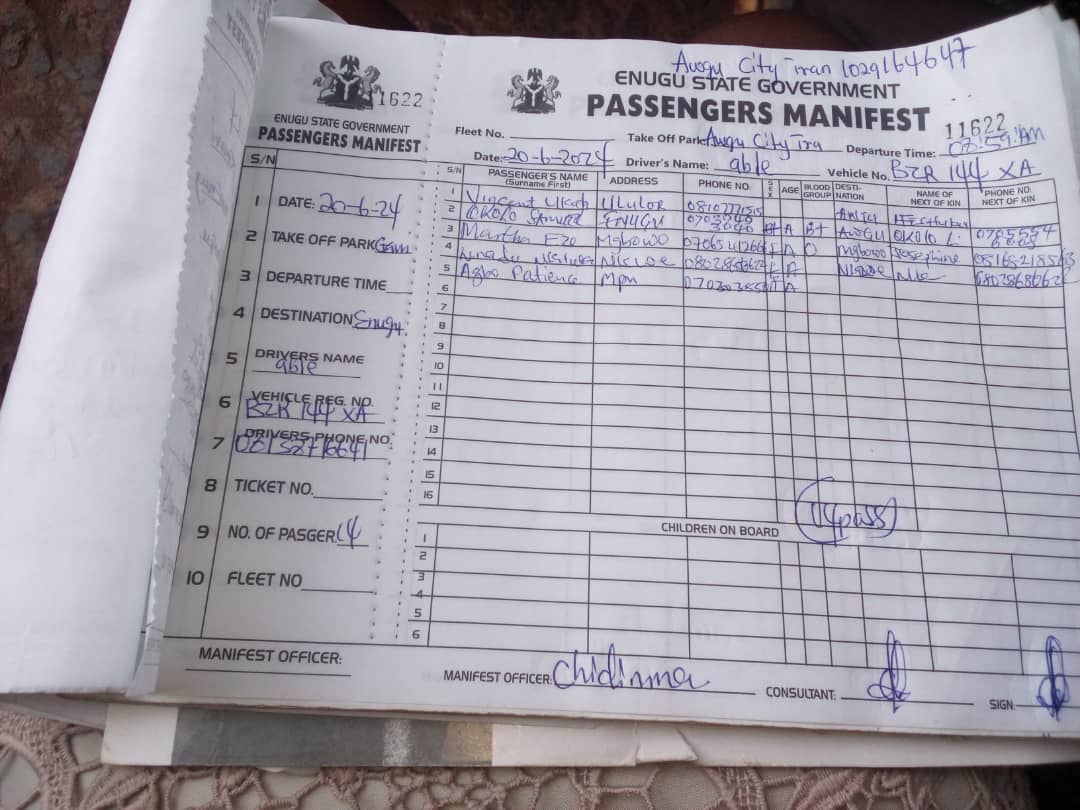 1622
ENUGU STATE GOVERNMENT
PASSENGERS MANIFEST
S/N
1 DATE: 20-6-24
2 TAKE OFF PARK
3 DEPARTURE TIME
4 DESTINATION Enugu
5 DRIVERS NAME
able
6 VEHICLE REG. NO.
BZR 144 XA
7 DRIVERS PHONE NO.
8 TICKET NO.
9 NO. OF PASGER 14
10 FLEET NO
MANIFEST OFFICER:
Awgu City Tran 1029164647
ENUGU STATE GOVERNMENT
PASSENGERS MANIFEST
11622
Fleet No. Take Off Park: Awgu City Tra Departure Time: 07:59:AM
Date: 20-6-2024 Driver's Name: able Vehicle No. BZR 144 XA
S/N PASSENGER'S NAME (Surname First) ADDRESS PHONE NO. SEX AGE BLOOD GROUP DESTI-NATION NAME OF NEXT OF KIN PHONE NO. NEXT OF KIN
1 Vincent Ukah Ululor
2 OKOLO Samuel ENUGU A B+ Awgu OKOLO L.
3 Martha Eze Mgbowo A O Mgbowo Josephine
4 A
5 Agbo Patience Mpu A
6
7
8
9
10
11
12
13
14
15
16
14pass
CHILDREN ON BOARD
1
2
3
4
5
6
MANIFEST OFFICER: Chidinma CONSULTANT: SIGN